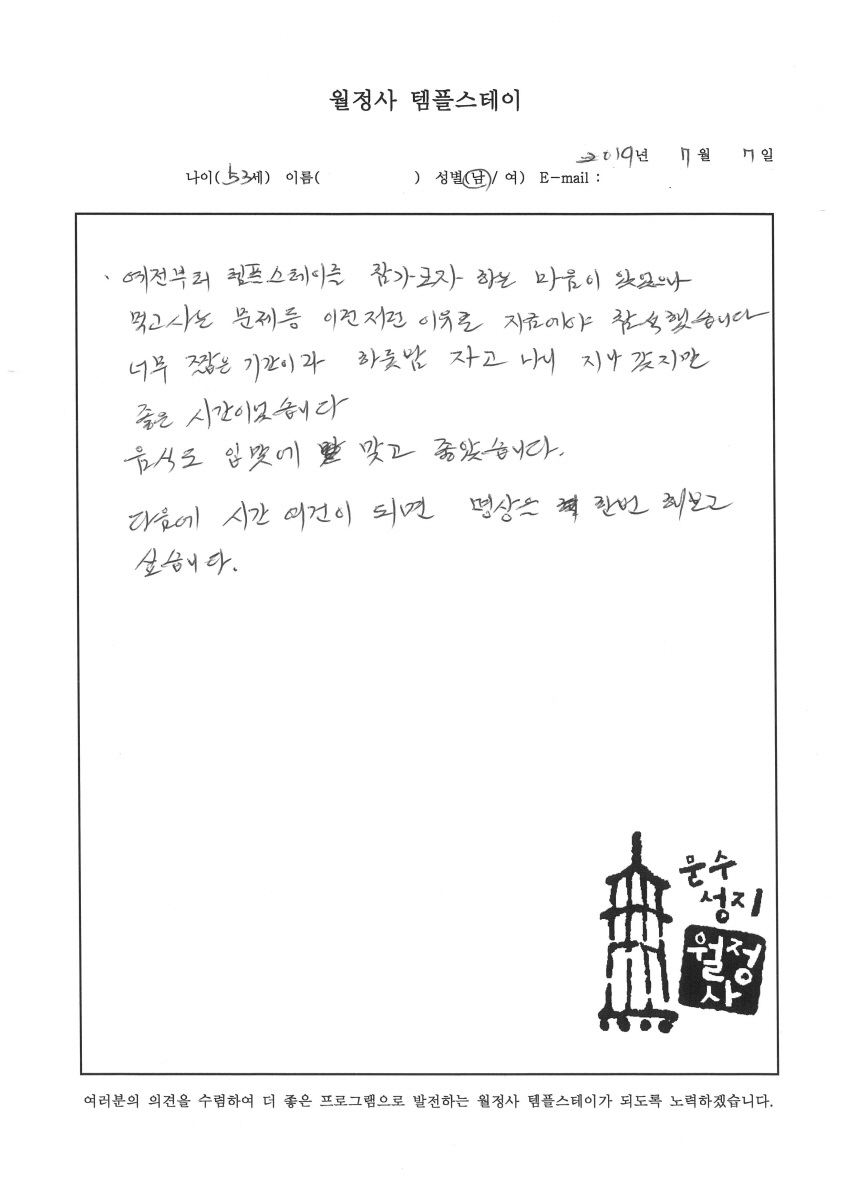 월정사 템플스테이
2019년 7월 7일
나이(53세) 이름( ) 성별(남/ 여) E-mail :
예전부터 템플스테이를 참가코자 하는 마음이 있었으나
먹고사는 문제등 이런저런 이유로 지금에야 참석했습니다
너무 짧은 기간이라 하룻밤 자고 나니 지나 갔지만
좋은 시간이었습니다
음식도 입맛에 맞고 좋았습니다.
다음에 시간 여건이 되면 명상을 한번 해보고
싶습니다.
문수
성지
월정
사
여러분의 의견을 수렴하여 더 좋은 프로그램으로 발전하는 월정사 템플스테이가 되도록 노력하겠습니다.